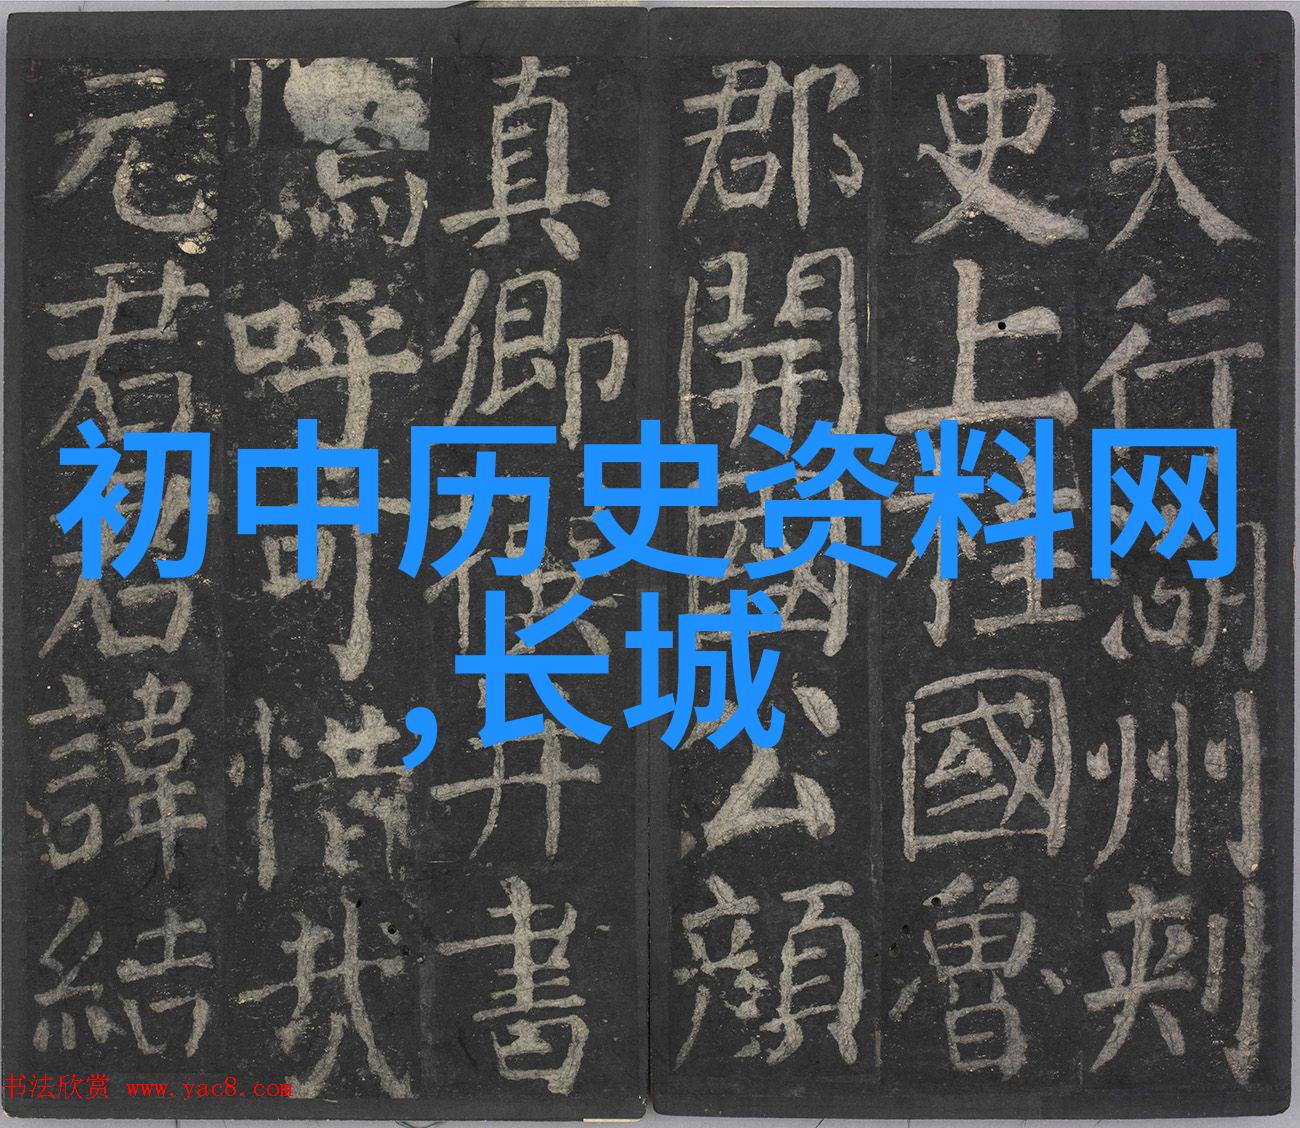 夫行湖州刺
史上柱國魯
郡開國公顏
真卿并書
嗚呼可惜哉
元君君諱結
初中历史资料网
,长城
书法欣赏 www.yac8.com